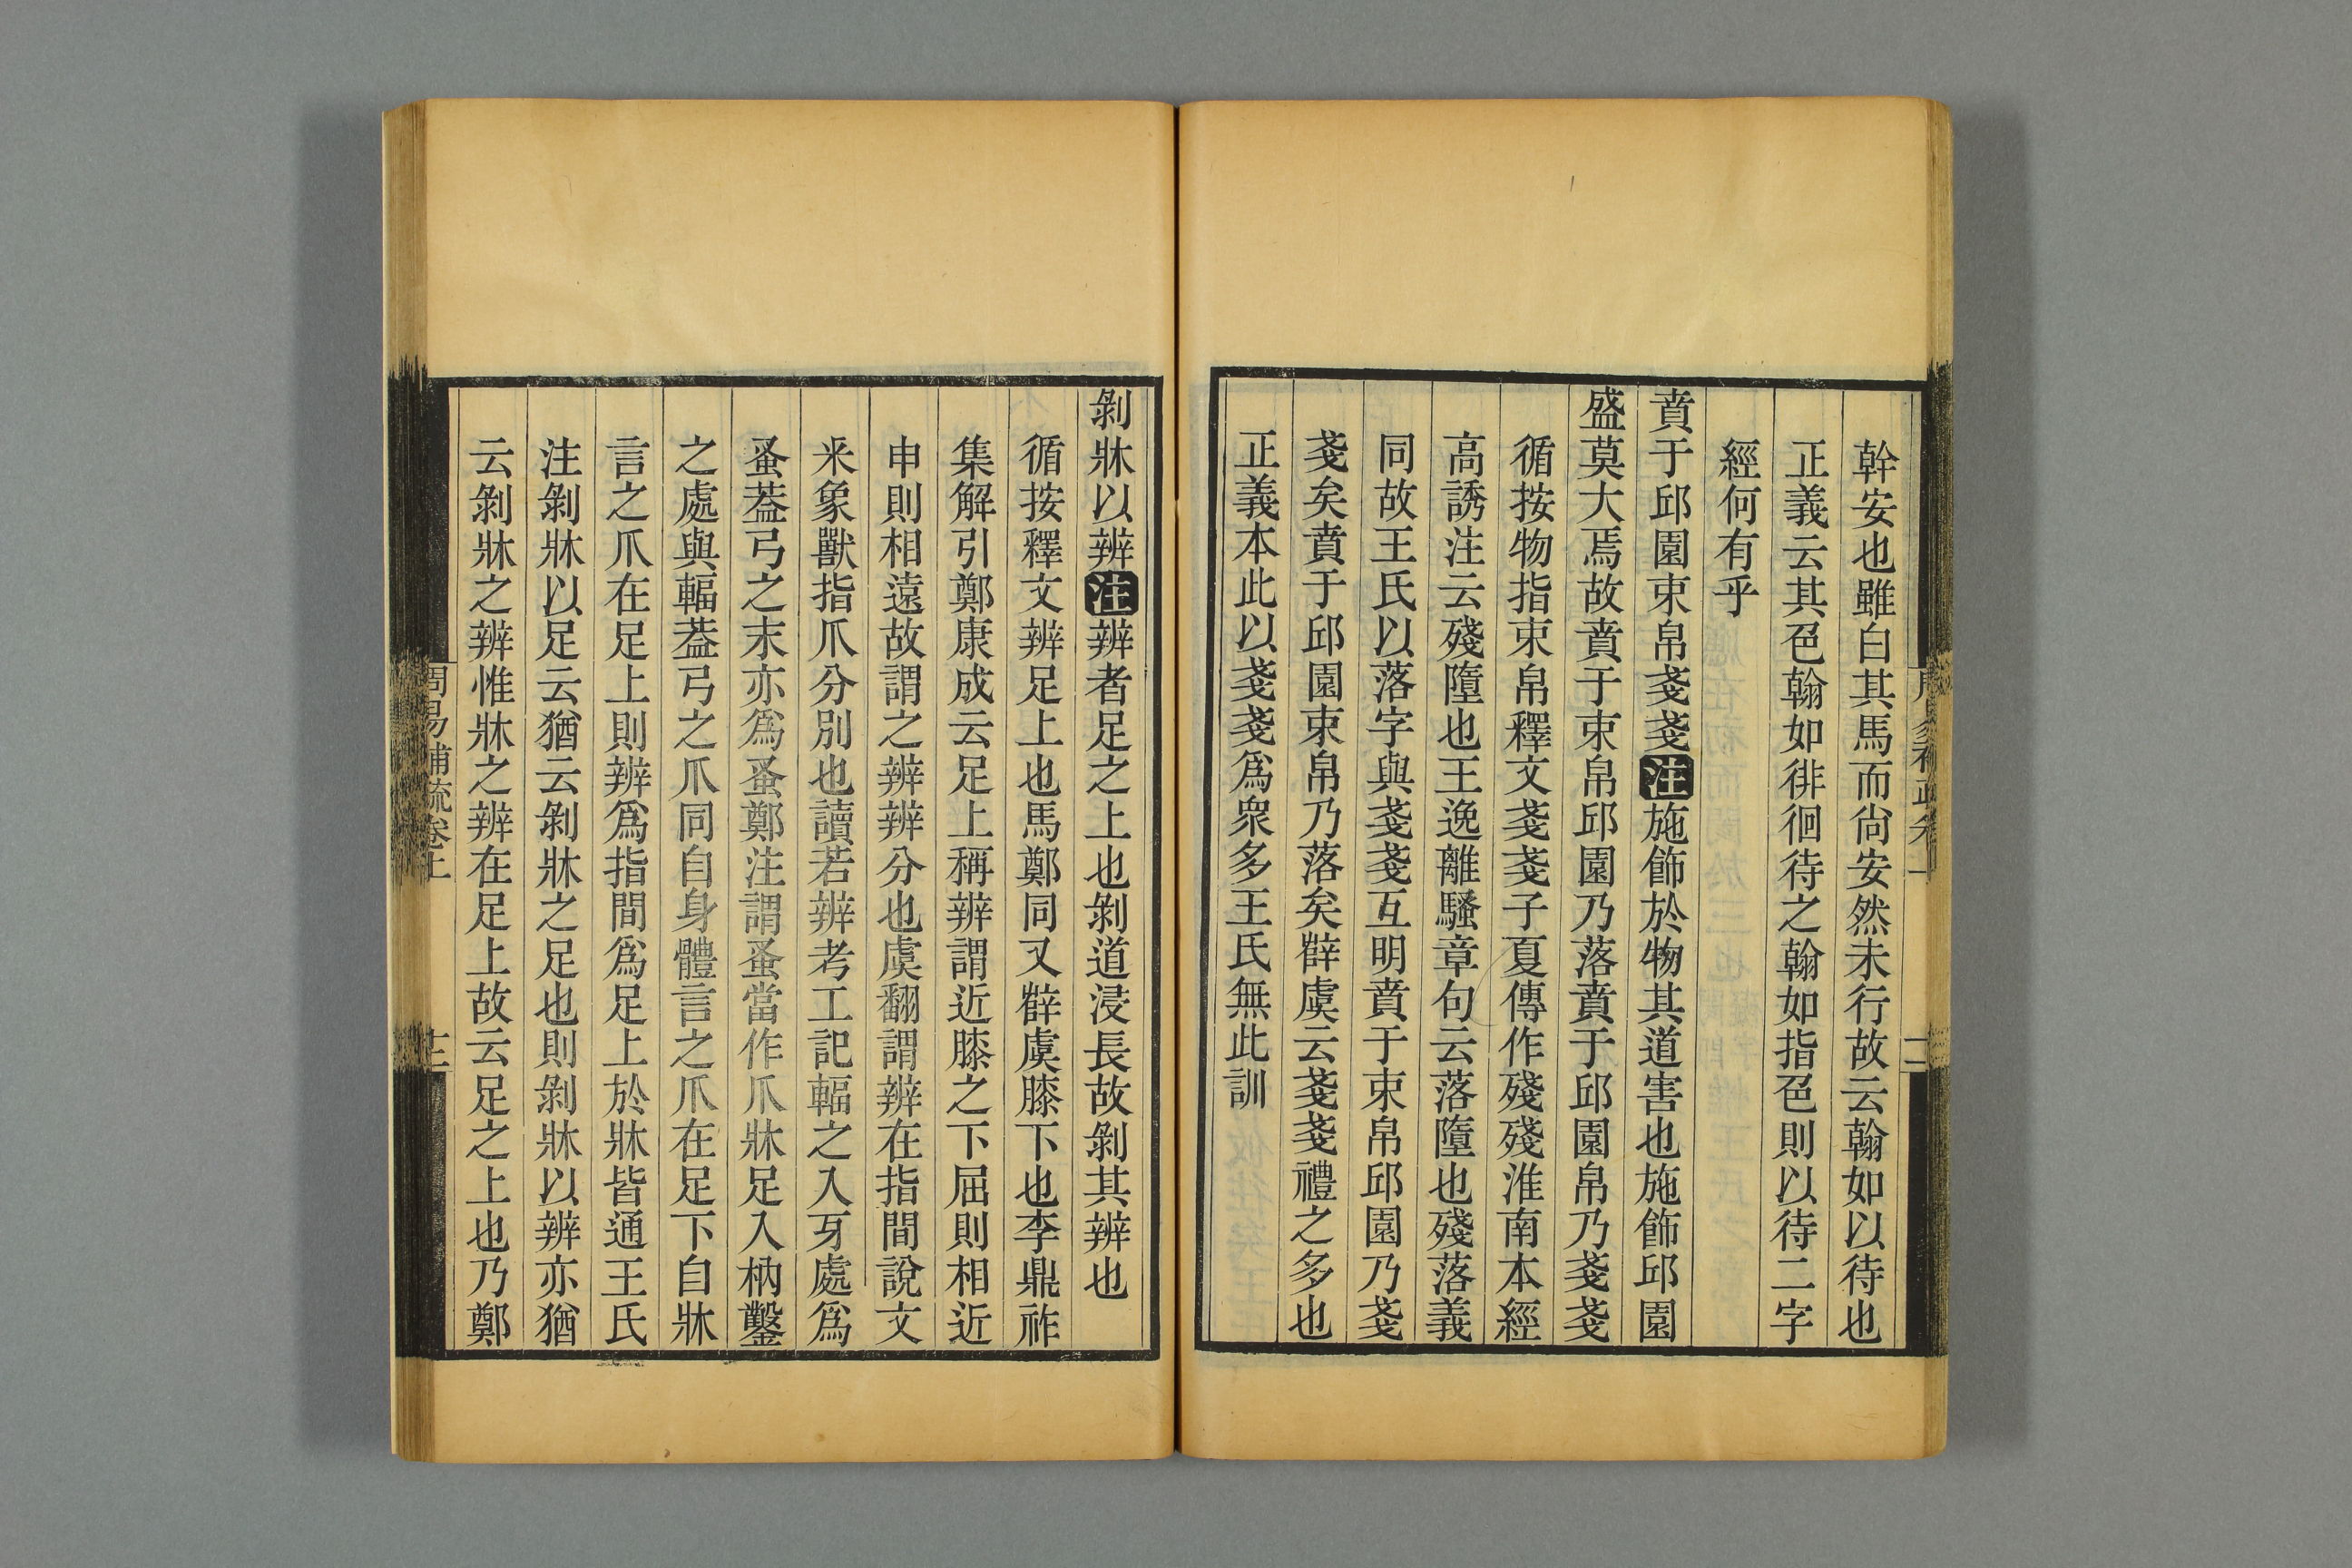 幹安也雖白其馬而尚安然未行故云翰如以待也
正義云其色翰如徘徊待之翰如指色則以待二字
經何有乎
賁于邱園束帛戔戔注施飾於物其道害也施飾邱園
盛莫大焉故賁于束帛邱園乃落賁于邱園帛乃戔戔
循按物指束帛釋文戔戔子夏傳作殘殘淮南本經
高誘注云殘墮也王逸離騷章句云落墮也殘落義
同故王氏以落字與戔戔互明賁于束帛邱園乃戔
戔矣賁于邱園束帛乃落矣辥虞云戔戔禮之多也
正義本此以戔戔爲衆多王氏無此訓
剝牀以辨注辨者足之上也剝道浸長故剝其辨也
循按釋文辨足上也馬鄭同又辥虞膝下也李鼎祚
集解引鄭康成云足上稱辨謂近膝之下屈則相近
申則相遠故謂之辨辨分也虞翻謂辨在指間說文
釆象獸指爪分別也讀若辨考工記輻之入牙處爲
蚤葢弓之末亦爲蚤鄭注謂蚤當作爪牀足入枘鑿
之處與輻葢弓之爪同自身體言之爪在足下自牀
言之爪在足上則辨爲指間爲足上於牀皆通王氏
注剝牀以足云猶云剝牀之足也則剝牀以辨亦猶
云剝牀之辨惟牀之辨在足上故云足之上也乃鄭
周易補疏卷上